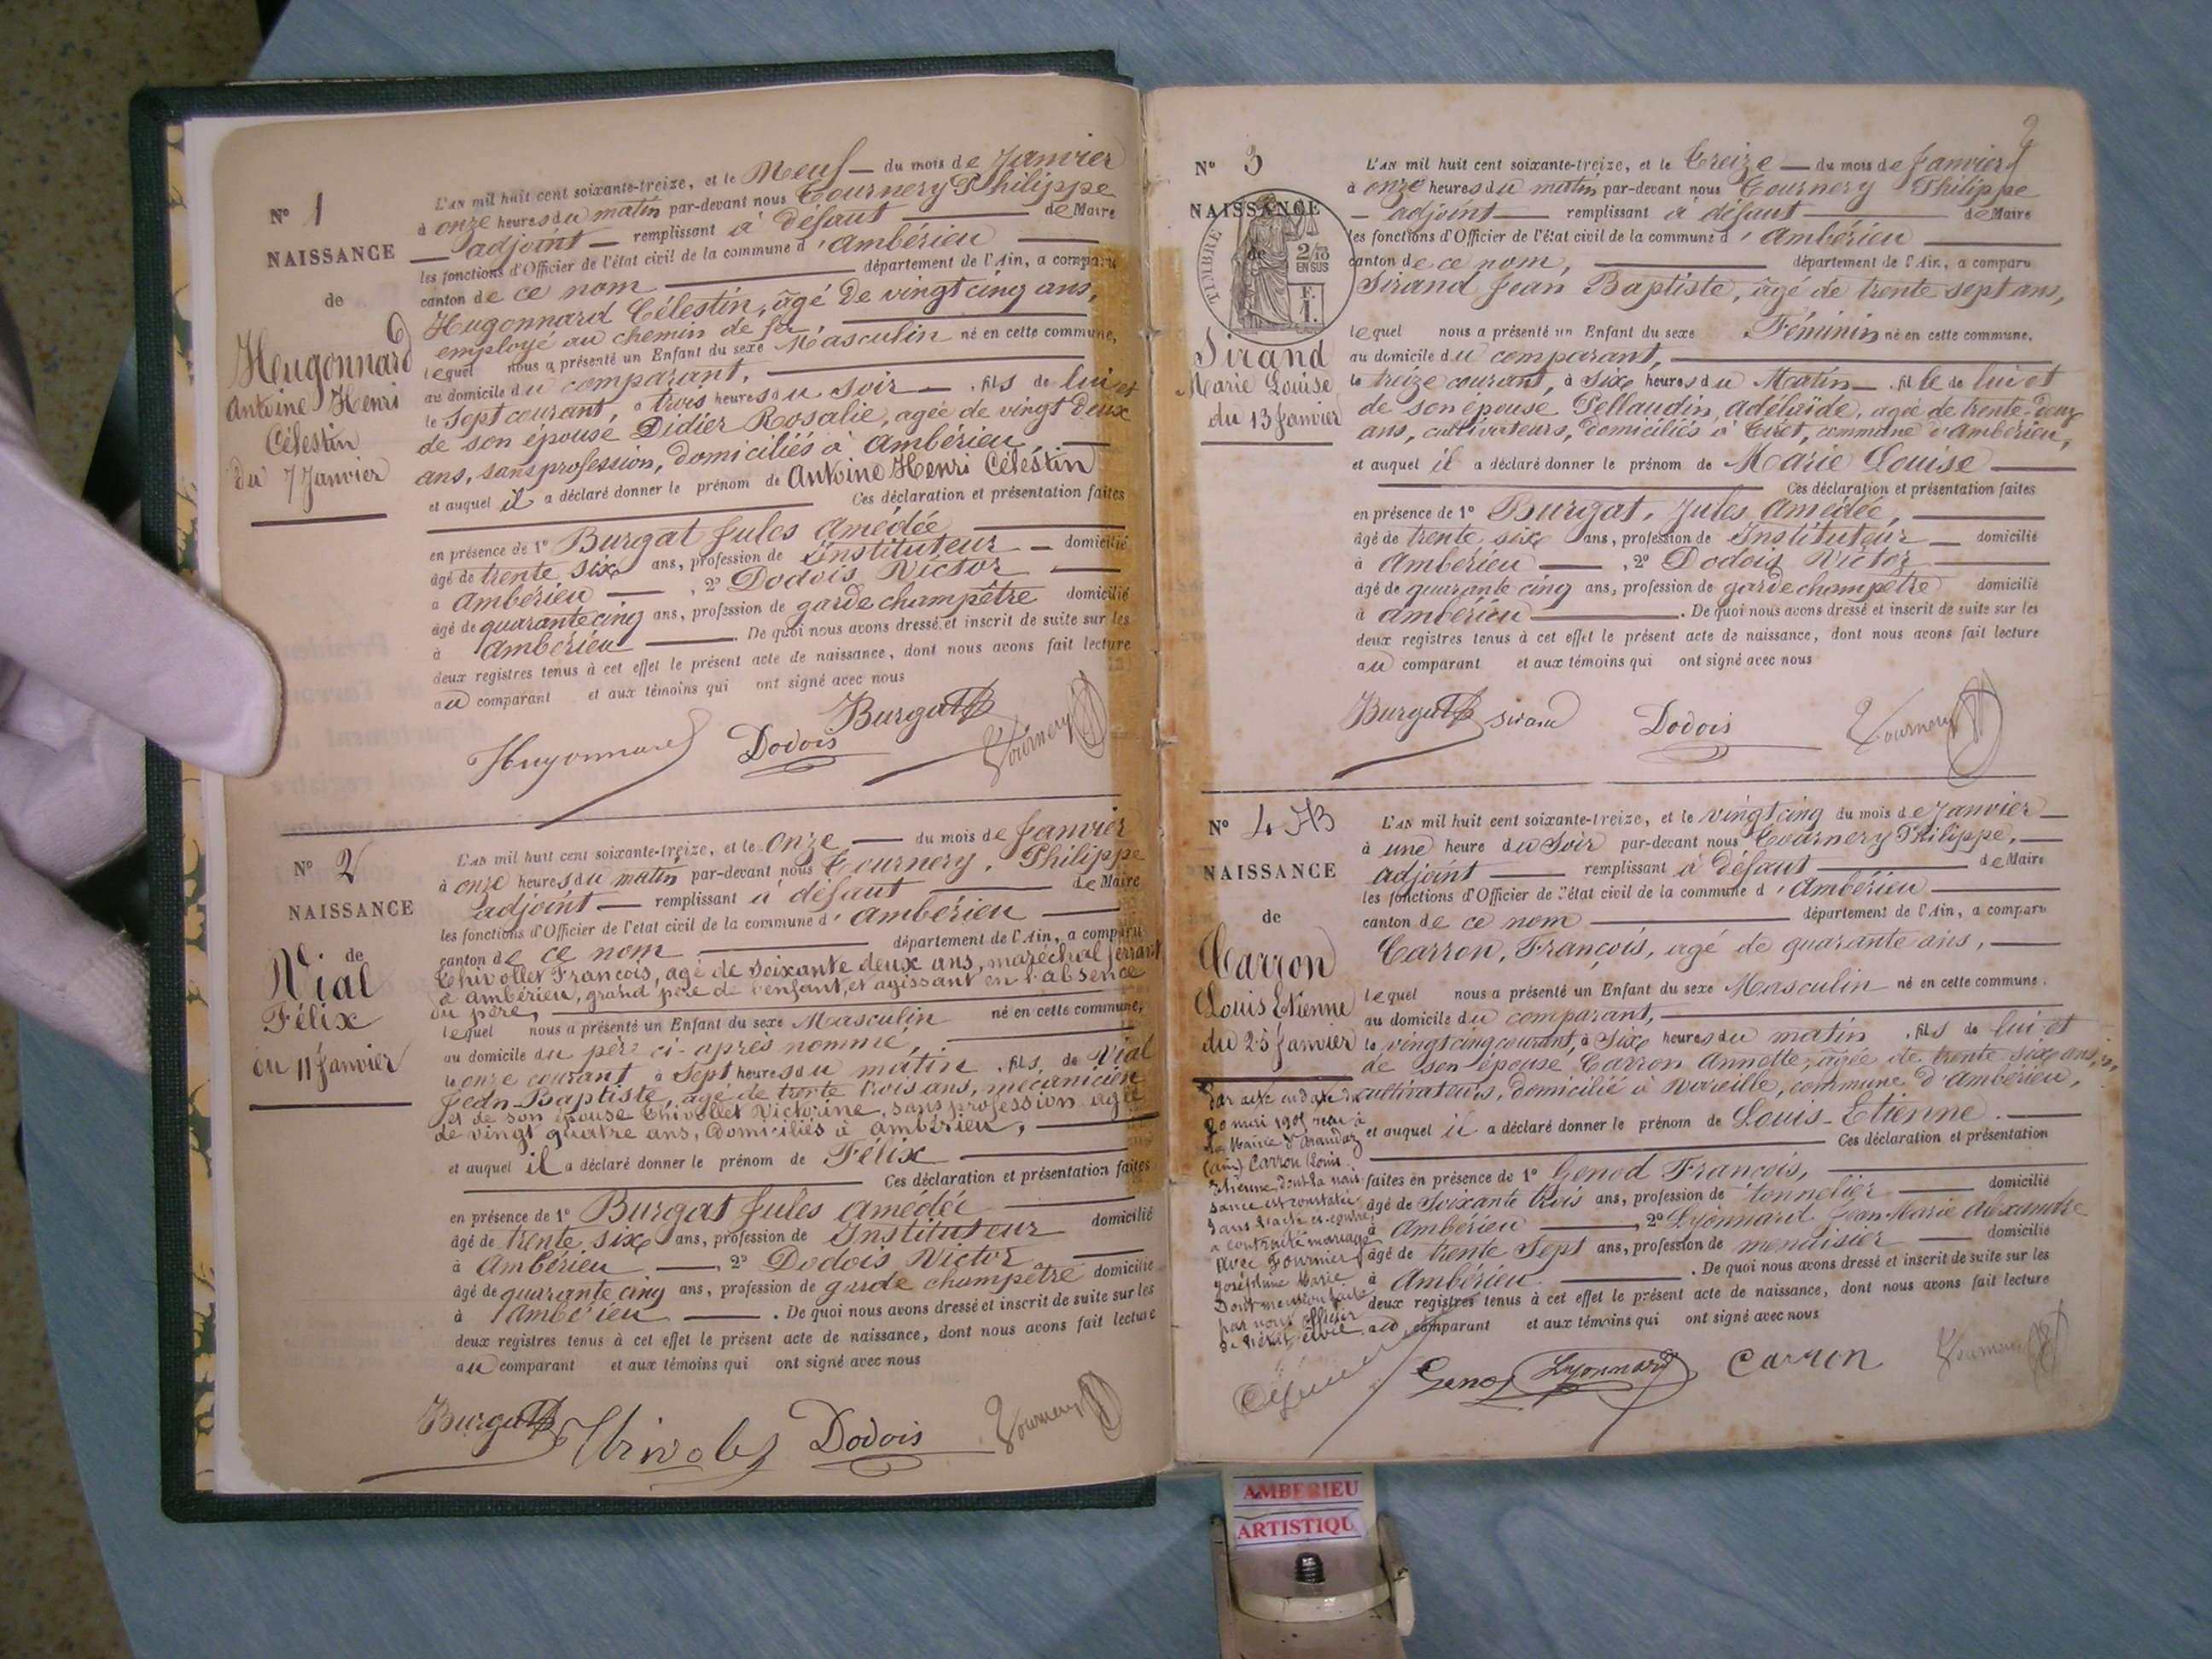 N° 1
NAISSANCE
de
Hugonnard
Antoine Henri
Célestin
du 7 Janvier
L'AN mil huit cent soixante-treize, et le Neuf du mois de Janvier
à onze heures du matin par-devant nous Tournery Philippe
adjoint remplissant à défaut de Maire
les fonctions d'Officier de l'état civil de la commune d'Ambérieu
canton de ce nom département de l'Ain, a comparu
Hugonnard Célestin, âgé de vingt cinq ans,
employé au chemin de fer
lequel nous a présenté un Enfant du sexe Masculin né en cette commune,
au domicile du comparant,
le Sept courant, à trois heures du soir fils de lui et
de son épouse Didier Rosalie, agée de vingt deux
ans, sans profession, domiciliés à Ambérieu,
et auquel il a déclaré donner le prénom de Antoine Henri Célestin
Ces déclaration et présentation faites
en présence de 1° Burgat Jules Amédée
âgé de trente six ans, profession de Instituteur domicilié
à Ambérieu, 2° Dodois Victor
âgé de quarante cinq ans, profession de garde champêtre domicilié
à Ambérieu. De quoi nous avons dressé et inscrit de suite sur les
deux registres tenus à cet effet le présent acte de naissance, dont nous avons fait lecture
au comparant et aux témoins qui ont signé avec nous
Hugonnard Dodois Burgat Tournery
N° 2
NAISSANCE
de
Vial
Félix
du 11 Janvier
L'AN mil huit cent soixante-treize, et le Onze du mois de Janvier
à onze heures du matin par-devant nous Tournery, Philippe
adjoint remplissant à défaut de Maire
les fonctions d'Officier de l'état civil de la commune d'Ambérieu
canton de ce nom département de l'Ain, a comparu
Chivollet François, agé de soixante deux ans, maréchal ferrant
à Ambérieu, grand père de l'enfant, et agissant en l'absence
du père,
lequel nous a présenté un Enfant du sexe Masculin né en cette commune,
au domicile du père ci-après nommé,
le onze courant à Sept heures du matin, fils de Vial
Jean-Baptiste, agé de trente trois ans, mécanicien
et de son épouse Chivollet Victorine, sans profession agée
de vingt quatre ans, domiciliés à Ambérieu,
et auquel il a déclaré donner le prénom de Félix
Ces déclaration et présentation faites
en présence de 1° Burgat Jules Amédée
âgé de trente six ans, profession de Instituteur domicilié
à Ambérieu, 2° Dodois Victor
âgé de quarante cinq ans, profession de garde champêtre domicilié
à Ambérieu. De quoi nous avons dressé et inscrit de suite sur les
deux registres tenus à cet effet le présent acte de naissance, dont nous avons fait lecture
au comparant et aux témoins qui ont signé avec nous
Burgat Chivollet Dodois Tournery
2
N° 3
NAISSANCE
de
TIMBRE
2/10
EN SUS
F.
1.
Sirand
Marie Louise
du 13 Janvier
L'AN mil huit cent soixante-treize, et le treize du mois de Janvier
à onze heures du matin par-devant nous Tournery Philippe
adjoint remplissant à défaut de Maire
les fonctions d'Officier de l'état civil de la commune d'Ambérieu
canton de ce nom, département de l'Ain, a comparu
Sirand Jean Baptiste, âgé de trente sept ans,
lequel nous a présenté un Enfant du sexe Féminin né en cette commune.
au domicile du comparant,
le treize courant, à six heures du Matin fille de lui et
de son épouse Pellaudin, Adélaïde, agée de trente-deux
ans, cultivateurs, domiciliés à Tiret, commune d'Ambérieu,
et auquel il a déclaré donner le prénom de Marie Louise
Ces déclaration et présentation faites
en présence de 1° Burgat, Jules Amédée,
âgé de trente six ans, profession de Instituteur domicilié
à Ambérieu, 2° Dodois Victor
âgé de quarante cinq ans, profession de garde champêtre domicilié
à Ambérieu. De quoi nous avons dressé et inscrit de suite sur les
deux registres tenus à cet effet le présent acte de naissance, dont nous avons fait lecture
au comparant et aux témoins qui ont signé avec nous
Burgat Sirand Dodois Tournery
N° 4
NAISSANCE
de
Carron
Louis Etienne
du 25 Janvier
L'AN mil huit cent soixante-treize, et le vingt cinq du mois de Janvier
à une heure du Soir par-devant nous Tournery Philippe,
adjoint remplissant à défaut de Maire
les fonctions d'Officier de l'état civil de la commune d'Ambérieu
canton de ce nom département de l'Ain, a comparu
Carron, François, agé de quarante ans,
lequel nous a présenté un Enfant du sexe Masculin né en cette commune.
au domicile du comparant,
le vingt cinq courant, à Six heures du matin, fils de lui et
de son épouse Carron Annette, agée de trente six ans,
cultivateurs, domicilié à Vareille, commune d'Ambérieu,
et auquel il a déclaré donner le prénom de Louis-Etienne.
Ces déclaration et présentation
faites en présence de 1° Genod François,
âgé de Soixante trois ans, profession de tonnelier domicilié
à Ambérieu, 2° Lyonnard Jean-Marie Alexandre
âgé de trente Sept ans, profession de menuisier domicilié
à Ambérieu. De quoi nous avons dressé et inscrit de suite sur les
deux registres tenus à cet effet le présent acte de naissance, dont nous avons fait lecture
au comparant et aux témoins qui ont signé avec nous
Par acte en date du
20 mai 1905 reçu à
la Mairie d'Arandaz
(ain) Carron Louis
Etienne, dont la nais
sance est constatée
dans l'acte ci-contre
a contracté mariage
avec Fournier
Joséphine Marie
Dont mention faite
par nous officier
de l'état civil
Genod Lyonnard Carron Tournery
AMBERIEU
ARTISTIQU